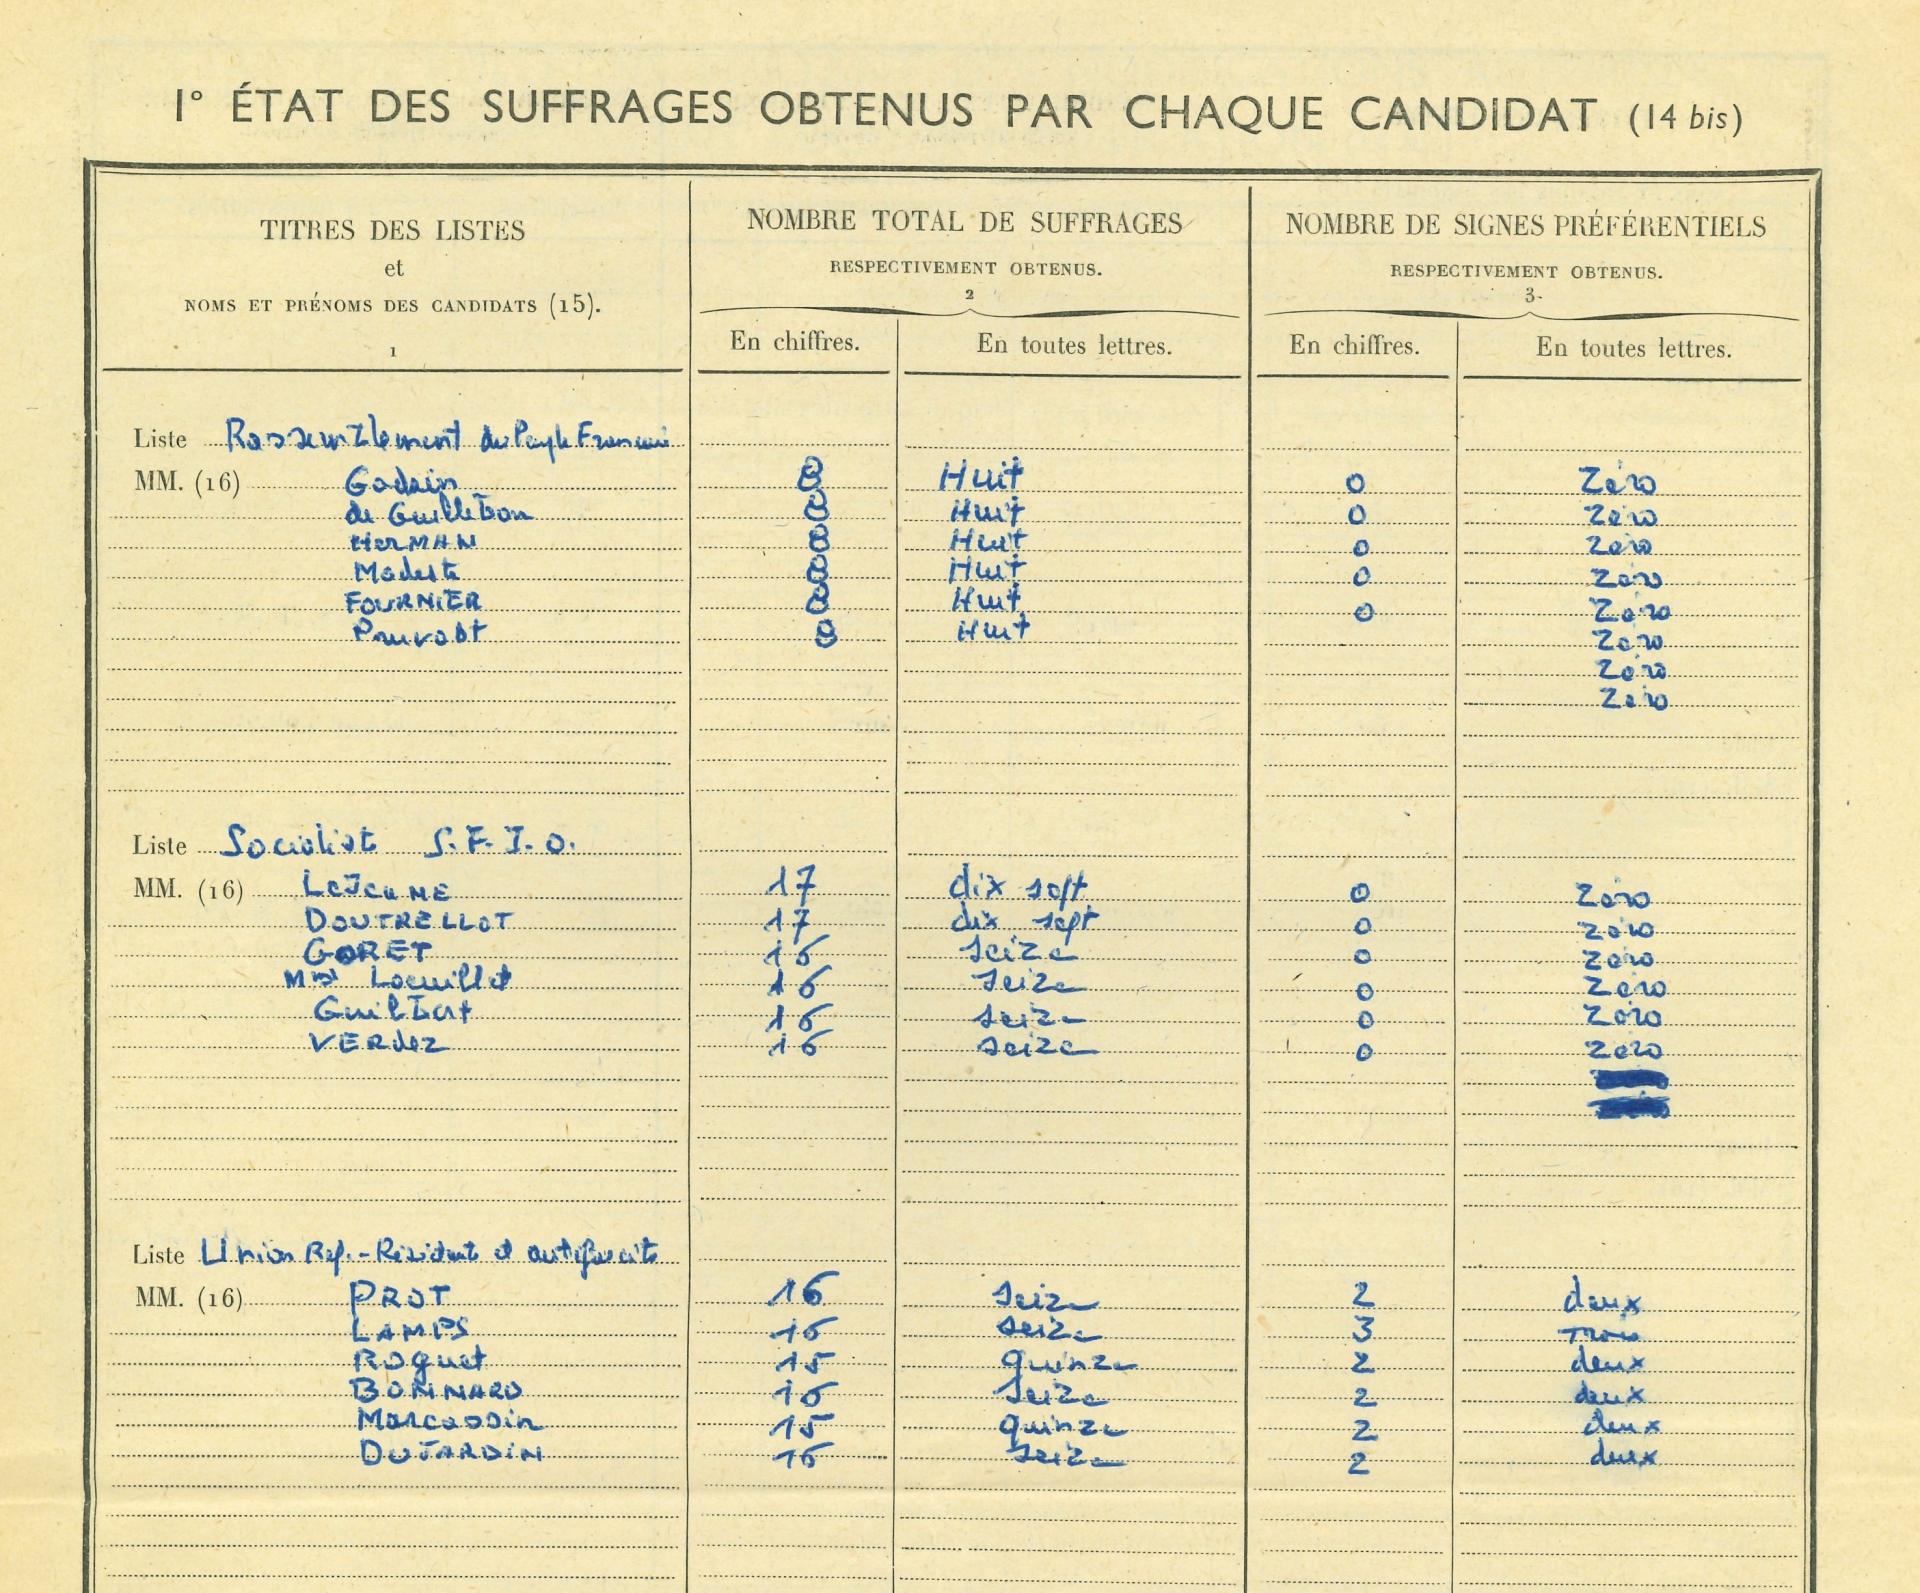 1° ÉTAT DES SUFFRAGES OBTENUS PAR CHAQUE CANDIDAT (14 bis)
TITRES DES LISTES
et
NOMS ET PRÉNOMS DES CANDIDATS (15).
1
NOMBRE TOTAL DE SUFFRAGES
RESPECTIVEMENT OBTENUS.
2
En chiffres. En toutes lettres.
NOMBRE DE SIGNES PRÉFÉRENTIELS
RESPECTIVEMENT OBTENUS.
3
En chiffres. En toutes lettres.
Liste Rassemblement du Peuple Francais
MM. (16) Godain 8 Huit 0 Zéro
de Guillebon 8 Huit 0 Zéro
HerMAN 8 Huit 0 Zéro
Modeste 8 Huit 0 Zéro
FOURNIER 8 Huit 0 Zéro
Pruvost 8 Huit Zéro
Zéro
Zéro
Liste Socialiste S.F.I.O.
MM. (16) LeJeuNE 17 dix sept 0 Zéro
DOUTRELLOT 17 dix sept 0 Zéro
GORET 16 seize 0 Zéro
Loeuillet 16 seize 0 Zéro
Guilbert 16 seize 0 Zéro
VERdez 16 seize 0 Zéro
Liste Union Rep.-Résistante et antifasciste
MM. (16) PROT 16 seize 2 deux
LAMPS 16 seize 3 Trois
Roguet 15 quinze 2 deux
BONNARD 16 seize 2 deux
Marcassin 15 quinze 2 deux
DUJARDIN 16 seize 2 deux